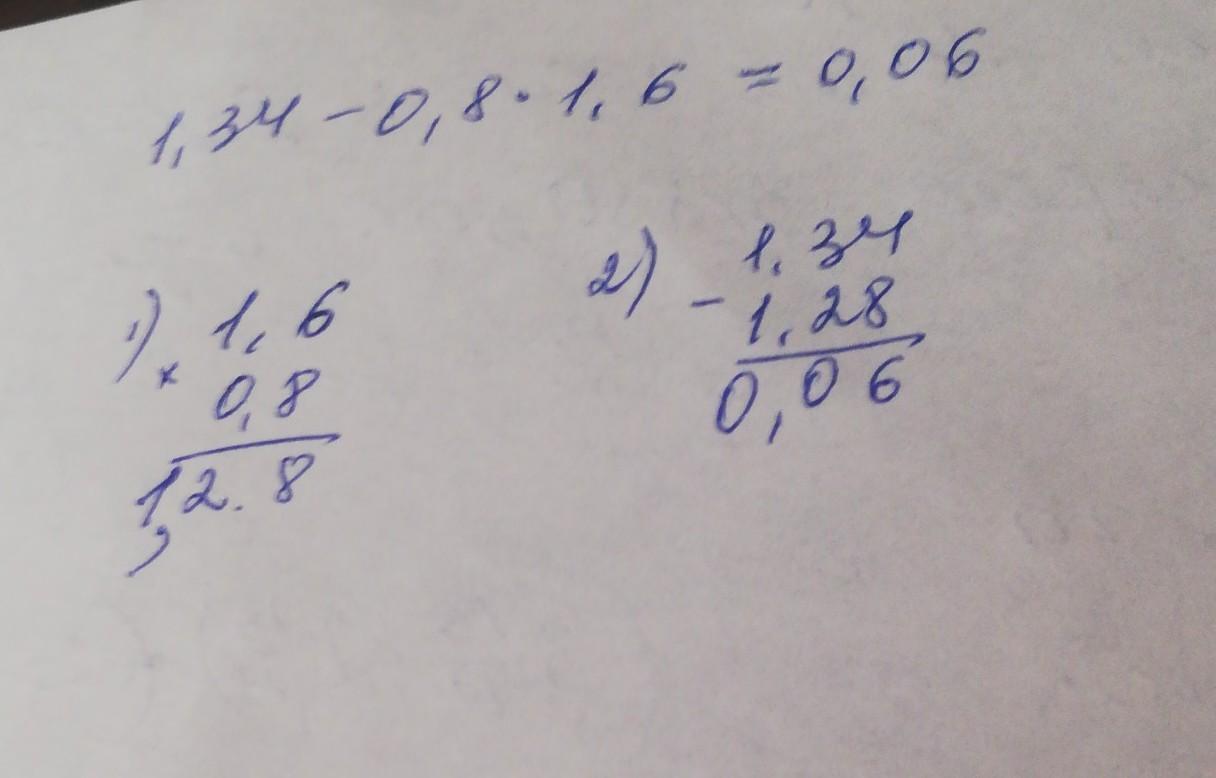 1,34 - 0,8 · 1,6 = 0,06
1) × 1,6
0,8
1,2.8
2) - 1,34
1,28
0,06